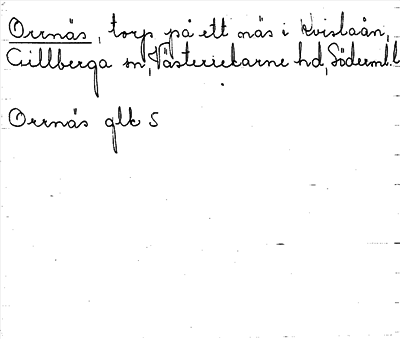 Orrnäs, torp på ett näs i Kvislaån,
Gillberga sn, Västerrekarne hd, Söderml. l
Orrnäs glk S